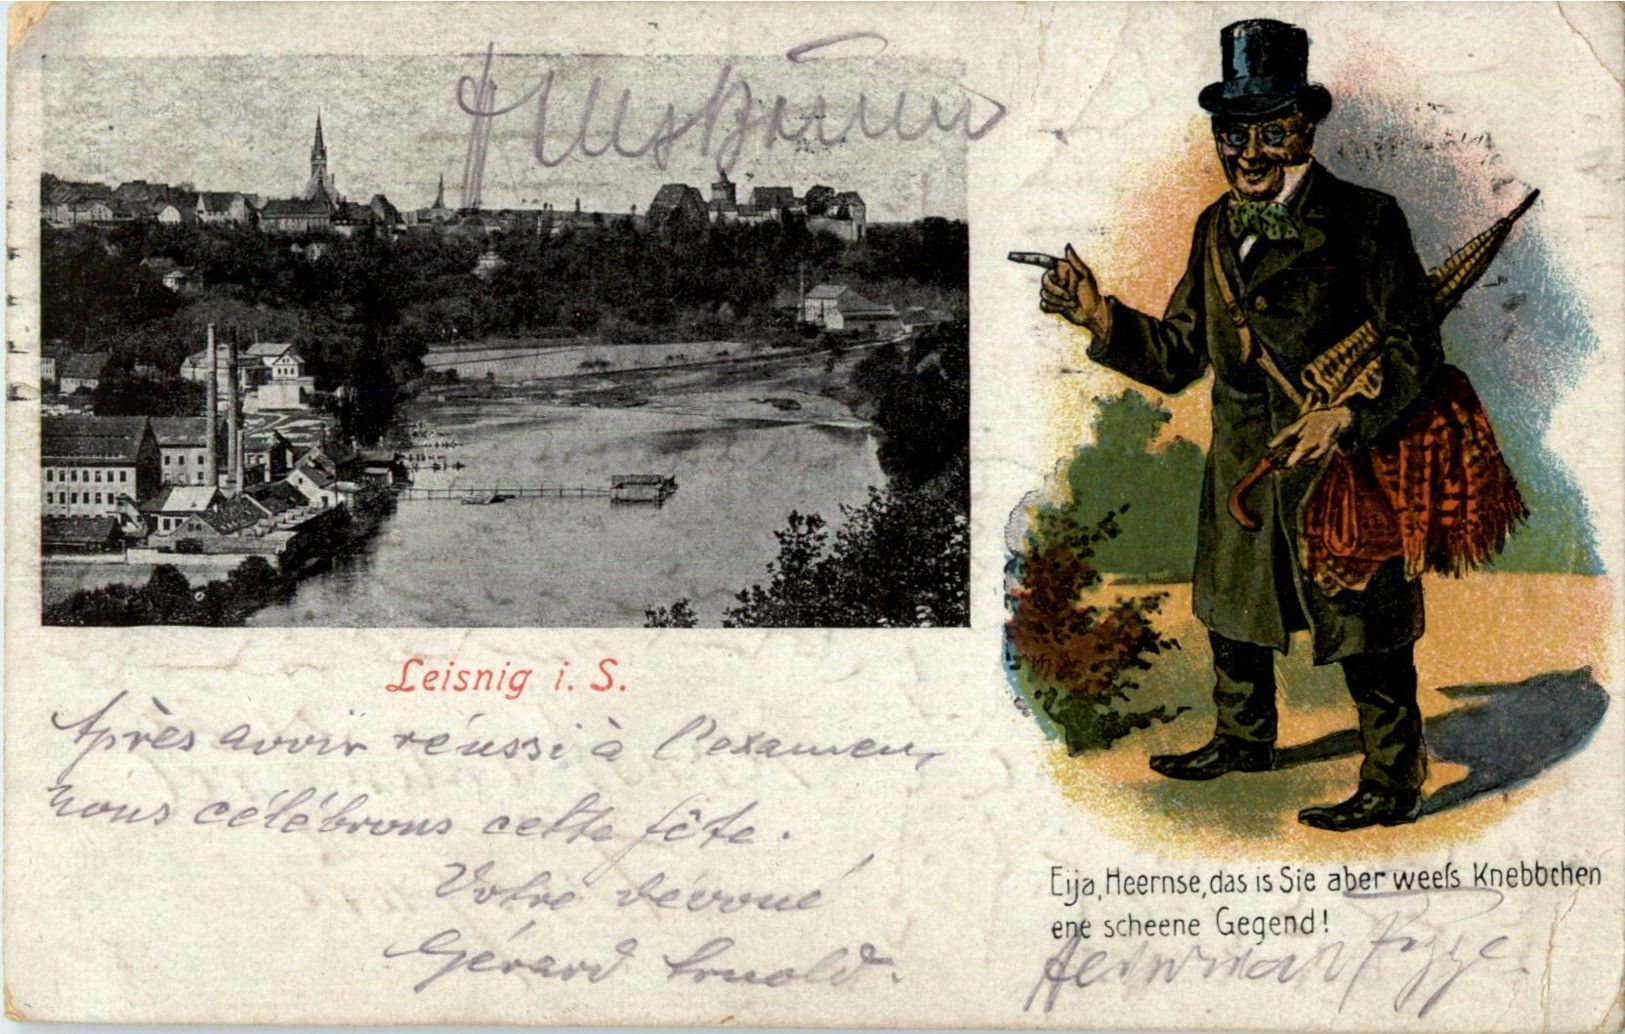 Leisnig i. S.
Après avoir réussi à l'examen,
nous célébrons cette fête.
Votre dévoué
Gérard Arnold.
Eija, Heernse, das is Sie aber weeſs Knebbchen
ene scheene Gegend!